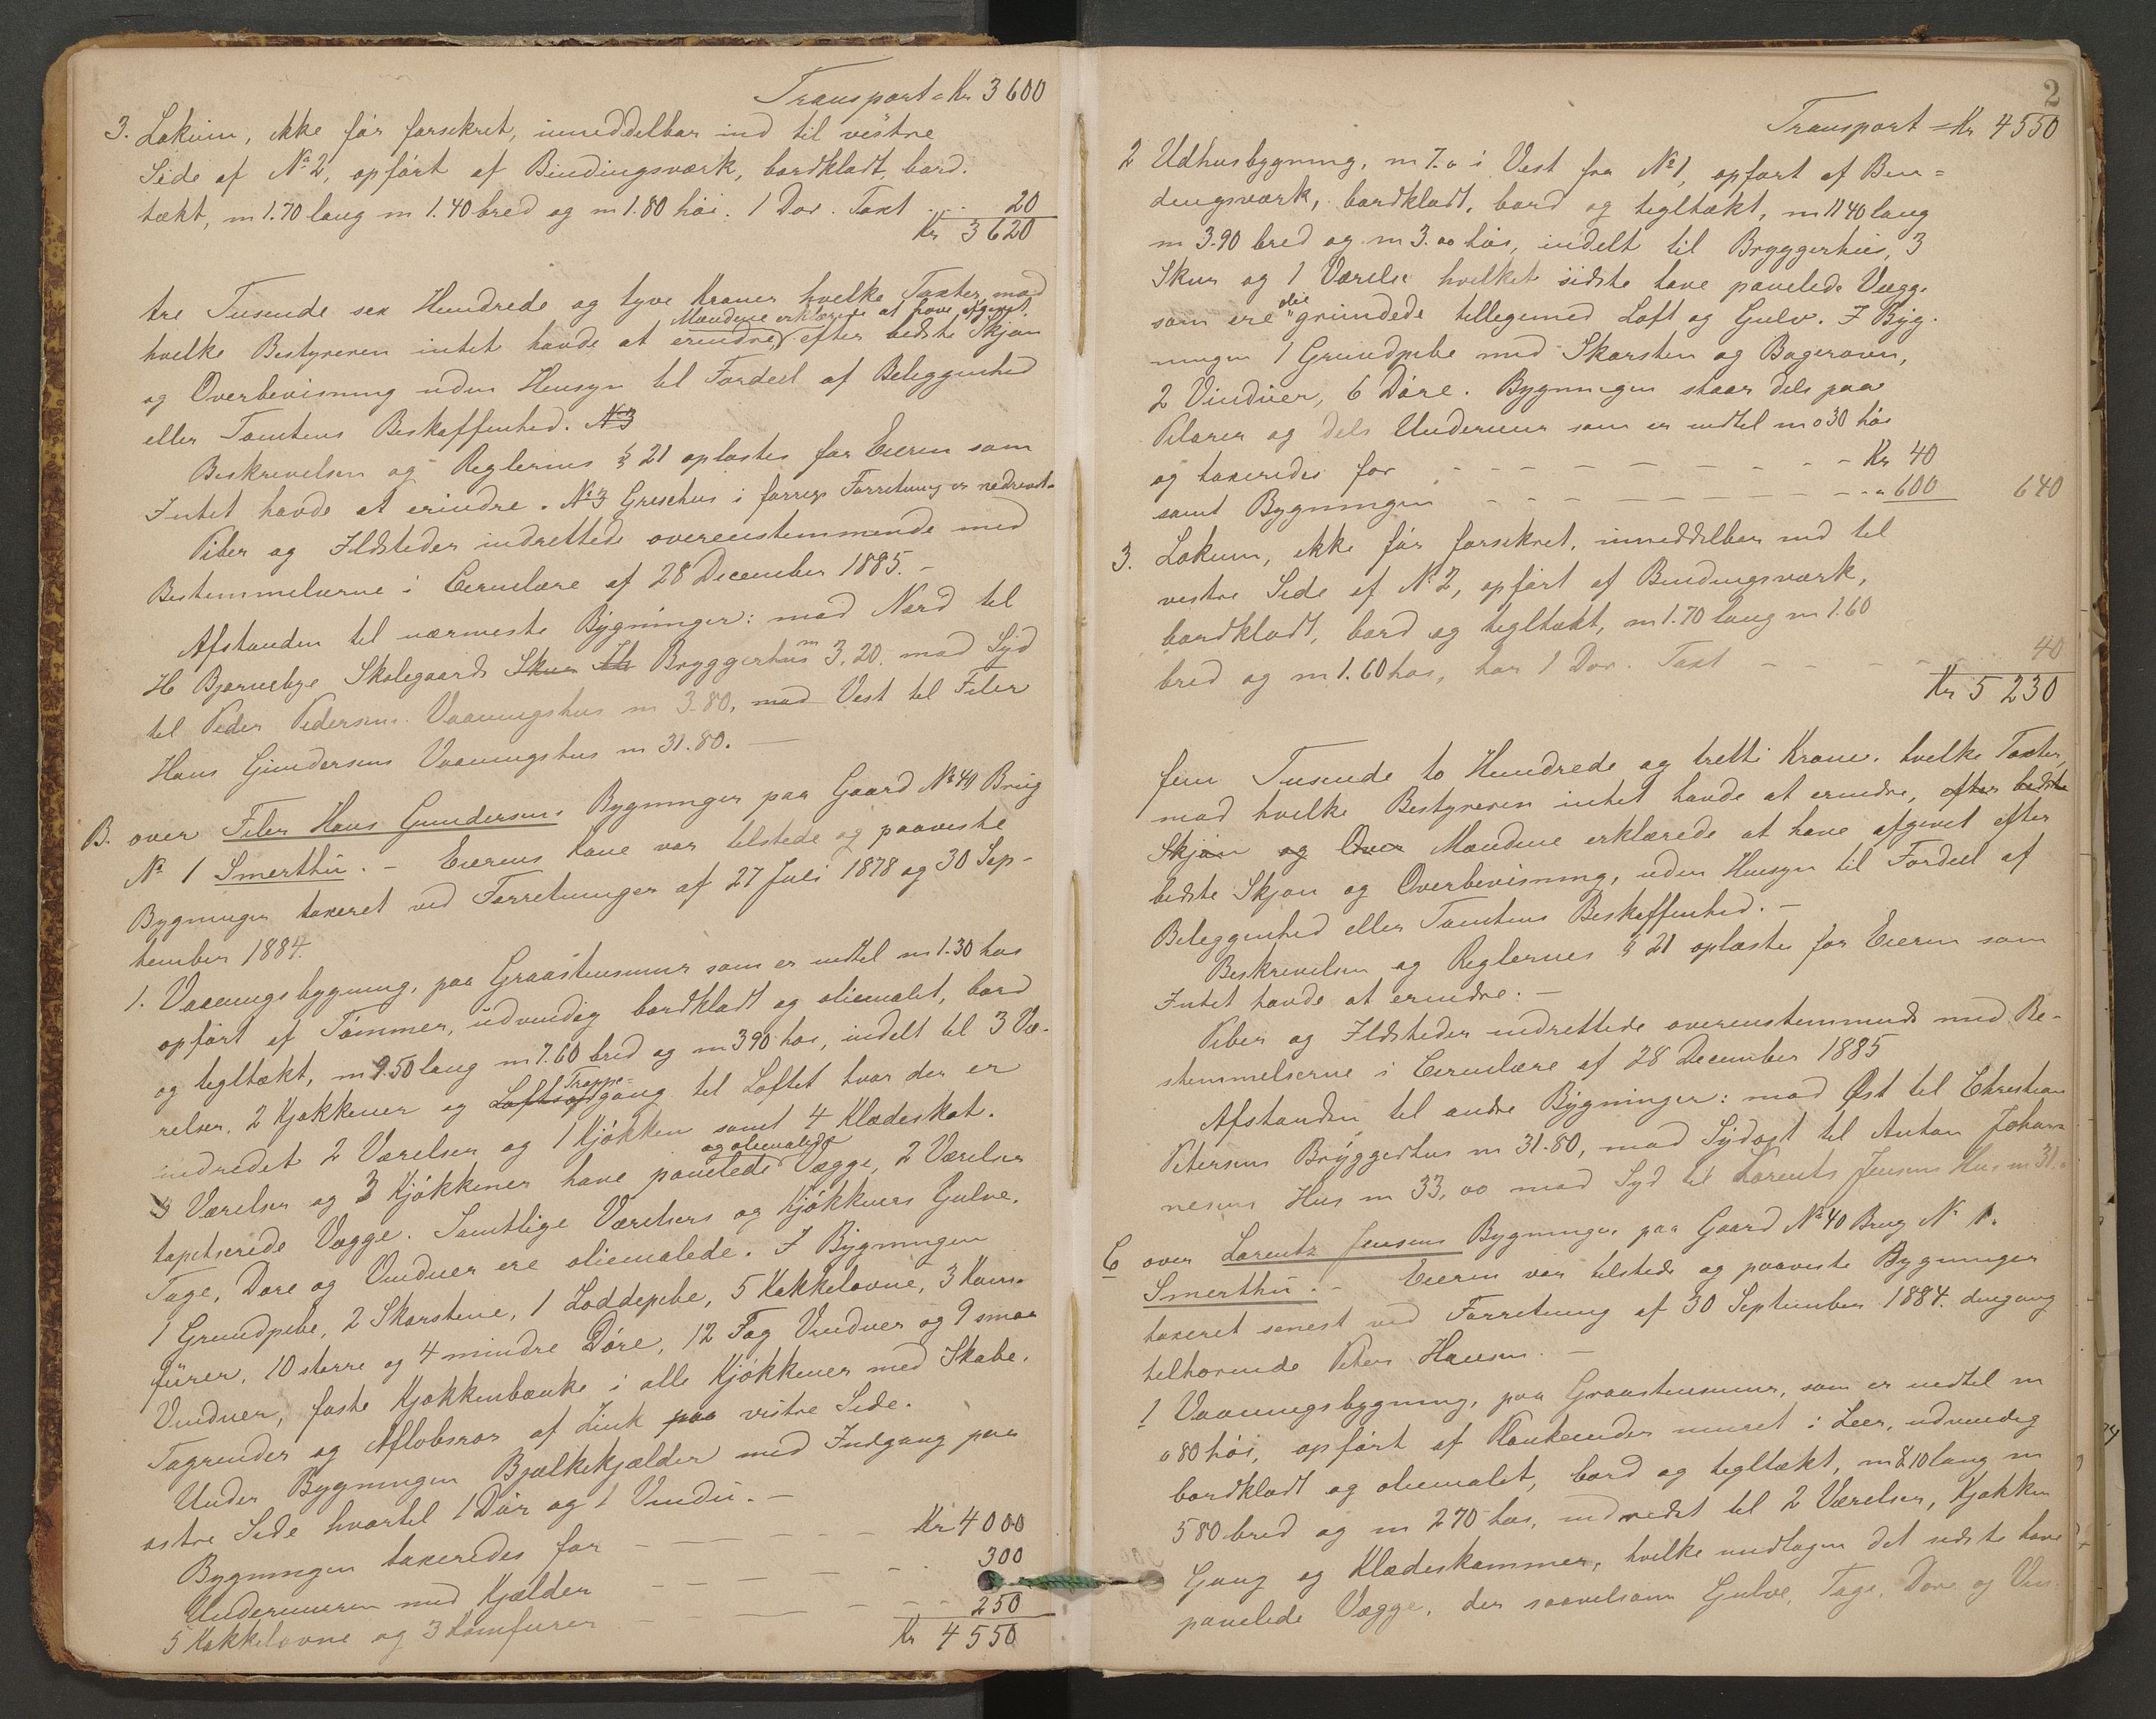 Transport = Kr 3600
3. Lokum, ikke før forsikret, umiddelbar ind til vestre
Side af No 2, opført af Bindingsværk, bordklædt, bord-
tækt, m 1.70 lang m 1.40 bred og m 1.80 høi. 1 Dør. Taxt . . . 20
Kr 3620
tre Tusende sex Hundrede og tyve Kroner hvelke Taxter mod
Mændene erklærede at have afgivet
hvelke Bestyreren intet havde at erindre, efter bedste Skjøn
og Overbevisning uden Hensyn til Fordeel af Beleggenhed
eller Tomtens Beskaffenhed. No 3
Beskrivelsen og Reglernes § 21 oplæstes for Eieren som
Intet havde at erindre. No 3 Grisehus i forrige Forretning er nedrevet.
Piber og Ildsteder indrettede overensstemmende med
Bestemmelserne i Circulære af 28 December 1885. -
Afstanden til nærmeste Bygninger: mod Nord til
H Bjørnebye Skolegaards Skur Bryggerhus m 3,20. mod Syd
til Peder Pedersens Vaaningshus m 3-80, mod Vest til Feler
Hans Gundersens Vaaningshus m 31.80. —
B. over Feler Hans Gundersens Bygninger paa Gaard No 40 Brug
No 1 Smerthu. - Eierens Kone var tilstede og paaviste
Bygninger taxeret ved Forretninger af 27 Juli 1878 og 30 Sep-
tember 1884.
1. Vaaningsbygning, paa Graastensmur som er indtil m 1.30 høi
opført af Tømmer, udvendig bordklædt og oliemalet, bord
og tegltækt, m 9.50 lang m 7.60 bred og m 3 90 høi, indelt til 3 Væ-
relser, 2 Kjøkkener og Loftsopgang Trappe- til Loftet hvor der er
indredet 2 Værelser og 1 Kjøkken samt 4 Klædeskot.
3 Værelser og 3 Kjøkkener have panelede og oliemalede Vægge, 2 Værelser
tapetserede Vægge. Samtlige Værelsers og Kjøkkeners Gulve,
Tage, Døre og Vinduer ere oliemalede. I Bygningen
1 Grundpibe, 2 Skorstene, 1 Loddepibe, 5 Kakkelovne, 3 Kom-
fürer, 10 større og 4 mindre Døre, 12 Fag Vinduer og 9 smaa
Vinduer, faste Kjøkkenbænke i alle Kjøkkener med Skabe.
Tagrender og Afløbsrør af Zink paa vestre Side.
Under Bygningen Bjælkekjælder med Indgang paa
østre Side hvortil 1 Dør og 1 Vindu. -
Bygningen taxeredes for - - - - - Kr 4000
Undermuren med Kjælder - - - - - 300
5 Kakkelovne og 3 Komfurer - - - - - 250
Kr 4550
2
Transport = Kr 4550
2 Udhusbygning, m 7.0 i Vest fra No 1, opført af Bin=
dingsværk, bordklædt, bord og tegltækt, m 11 40 lang
m 3.90 bred og m 3.00 høi, indelt til Bryggerhus, 3
Skur og 1 Værelse hvilket sidste have panelede Vægge
som ere oliegrundede tillegemed Loft og Gulv. I Byg-
ningen 1 Grundpibe med Skorsten og Bagerovn,
2 Vinduer, 6 Døre. Bygningen staar dels paa
Pilarer og dels Undermur som er indtil m 0 30 høi
og taxeredes for - - - - - Kr 40
samt Bygningen - - - - - " 600 640
3. Lokum, ikke før forsikret, umiddelbar ind til
vestre Side af No 2, opført af Bindingsværk,
bordklædt, bord og tegltækt, m 1.70 lang m 1.60
bred og m 1.60 høi, har 1 Dør. Taxt - - - - 40
Kr 5 230
fem Tusende to Hundrede og tretti Kroner, hvelke Taxter,
mod hvilke Bestyreren intet havde at erindre, efter bedste
Skjøn og Over Mændene erklærede at have afgivet efter
bedste Skjøn og Overbevisning, uden Hensyn til Fordeel af
Beleggenhed eller Tomtens Beskaffenhed. -
Beskrivelsen og Reglernes § 21 oplæstes for Eieren som
Intet havde at erindre. -
Piber og Ildsteder indrettede overensstemmende med Be-
stemmelserne i Circulære af 28 December 1885
Afstanden til andre Bygninger: mod Øst til Christian
Petersens Brÿggerhus m 31-80, mod Sydost til Anton Johan
nesens Hus m 33,00 mod Syd til Lorents Jensens Hus m 31.
C over Lorentz Jensens Bygninger paa Gaard No 40 Brug No 1.
Smerthu. - Eieren var tilstede og paaviste Bygninger
taxeret senest ved Forretning af 30 September 1884. dengang
tilhørende Peter Hansen. -
1 Vaaningsbygning, paa Graastensmur, som er indtil m
0 80 høi, opført af Plankeender muret i Leer, udvendig
bordklædt og oliemalet, bord og tegltækt, m 8.10 lang m
5 80 bred og m 2 70 høi, indredet til 2 Værelser, Kjøkken
Gang og Klædeskammer, hvilke undtagen det sidste have
panelede Vægge, der saavelsom Gulve, Tage, Døre og Vin-